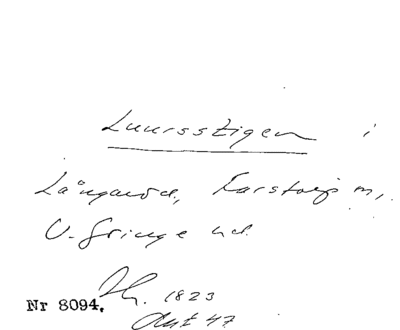 Luursstigen i
Långaröd, Färstorp m,
V. Gringe hd.
Nr 8094. 1823
Akt 47